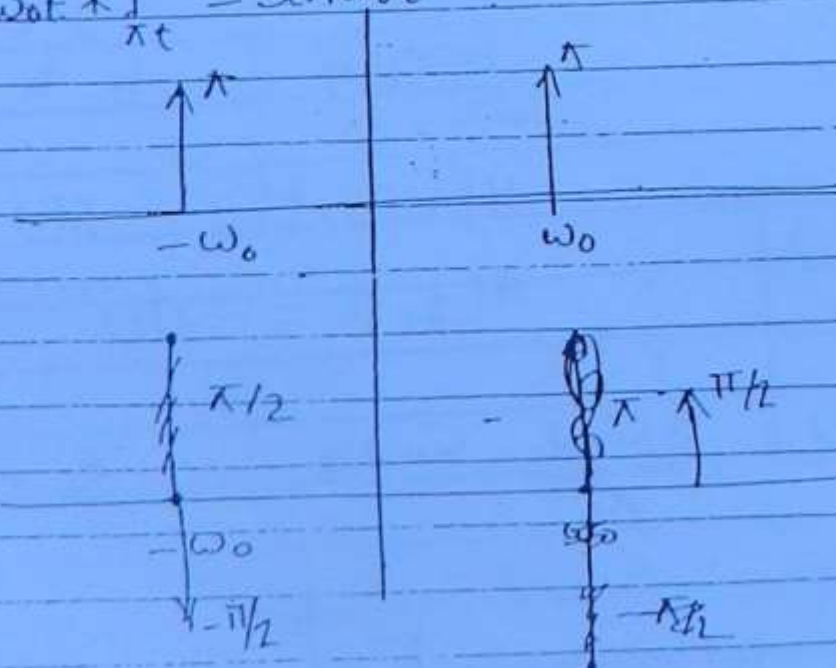 ω₀t * 1/πt =
π π
-ω₀ ω₀
π/2 - π π/2
-ω₀
-π/2